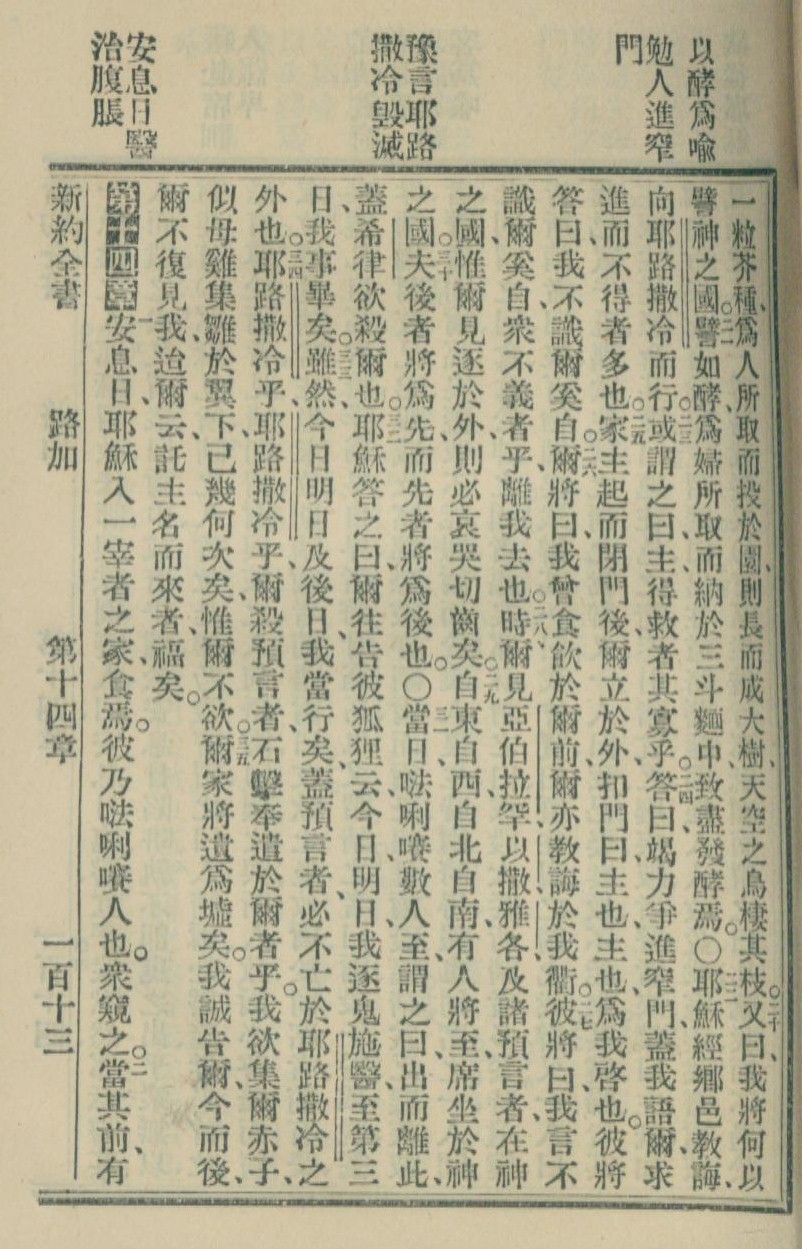 以酵爲喩
勉人進窄
門
豫言耶路
撒冷毀滅
安息日醫
治腹脹
一粒芥種、爲人所取而投於園、則長而成大樹、天空之鳥棲其枝。○二十又曰、我將何以
譬神之國。○二一譬如酵、爲婦所取而納於三斗麵中、致盡發酵焉。○二二耶穌經鄉邑教誨、
向耶路撒冷而行。○二三或謂之曰、主、得救者其寡乎。○二四答曰、竭力爭進窄門、蓋我語爾、求
進而不得者多也。○二五家主起而閉門後、爾立於外扣門曰、主也、主也、爲我啓也。彼將
答曰、我不識爾奚自。○二六爾將曰、我曾食飲於爾前、爾亦教誨於我衢。○二七彼將曰、我言不
識爾奚自、衆不義者乎、離我去也。○二八時、爾見亞伯拉罕、以撒、雅各、及諸預言者、在神
之國、惟爾見逐於外、則必哀哭切齒矣。○二九自東、自西、自北、自南、有人將至、席坐於神
之國。○三十夫後者將爲先、而先者將爲後也。○三一當日、㗓唎㘔數人至、謂之曰、出而離此、
蓋希律欲殺爾也。○三二耶穌答之曰、爾往告彼狐狸云、今日、明日、我逐鬼施醫、至第三
日、我事畢矣。○三三雖然、今日明日及後日、我當行矣、蓋預言者、必不亡於耶路撒冷之
外也。○三四耶路撒冷乎、耶路撒冷乎、爾殺預言者、石擊奉遣於爾者乎。我欲集爾赤子、
似母雞集雛於翼下、已幾何次矣、惟爾不欲。○三五爾家將遺爲墟矣。我誠告爾、今而後、
爾不復見我、迨爾云、託主名而來者、福矣。
第十四章一安息日、耶穌入一宰者之家、食焉。彼乃㗓唎㘔人也。衆窺之。○二當其前、有
新約全書　路加　第十四章　一百十三